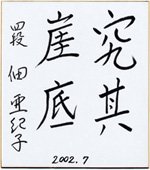 究其
崖底
四段 佃 亜紀子
2002.7